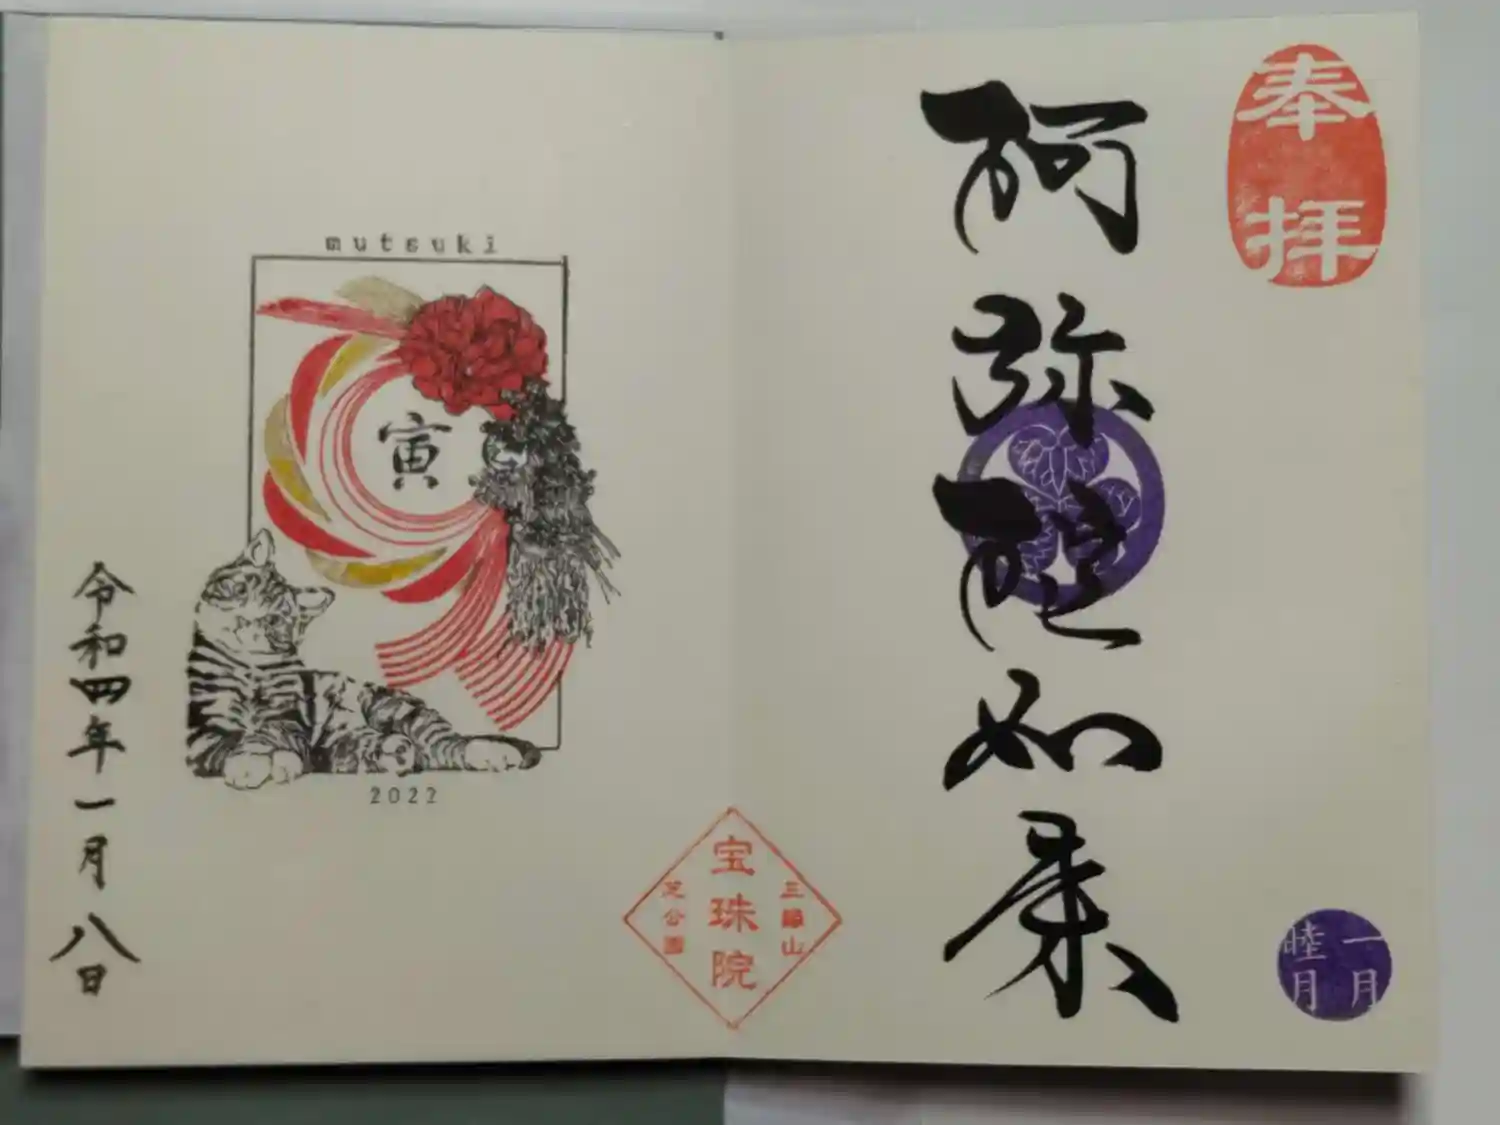 奉拝
阿弥陀如来
一月
睦月
三縁山
宝珠院
芝公園
mutsuki
寅
2022
令和四年一月八日